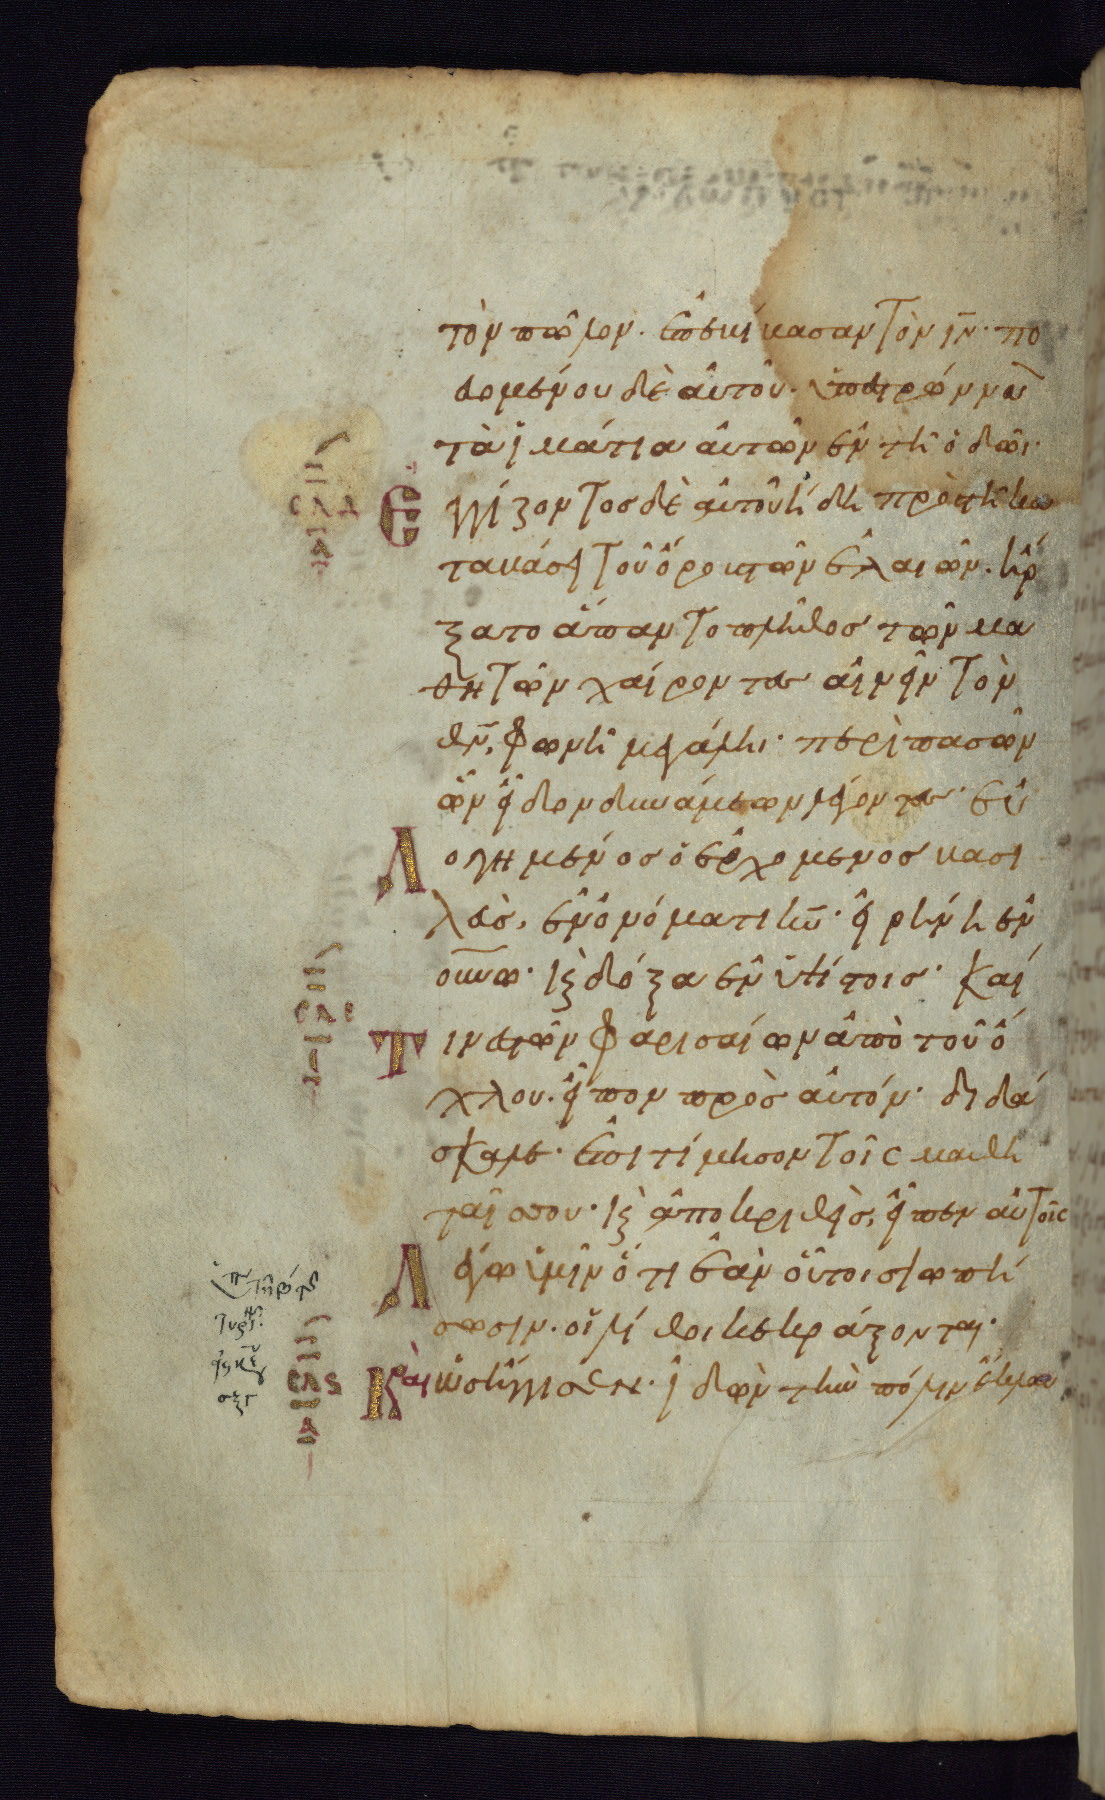 τὸν πῶλον. ἐπεβίβασαν τὸν ιν̅. πο
ρευομένου δὲ αὐτοῦ. ὑπεστρώννυον
τὰ ἱμάτια αὐτῶν ἐν τῆ ὁδῶι.
Ἐγγίζοντος δὲ αὐτοῦ ἤδη πρὸς τῆ κα
ταβάσει τοῦ ὄρους τῶν ἐλαιῶν. ἤρ
ξατο ἅπαν το πλῆθος τῶν μα
θητῶν χαίροντες αἰνεῖν τὸν
θν̅, φωνῆ μεγάλη. περὶ πασῶν
ὧν εἶδον δυνάμεων λέγοντες. εὐ
Λογημένος ὁ ἐρχόμενος βασι
λεὺς, ἐν ὀνόματι κυ̅. εἰρήνη ἐν
ουνω. κὶ δόξα ἐν ὑψίστοις. Καί
Τινες τῶν φαρισαίων ἀπὸ τοῦ ὄ
χλου. εἶπον πρὸς αὐτόν. διδά
σκαλε. ἐπιτίμησον τοῖς μαθη
ταῖς σου. κὶ ἀποκριθεὶς, εἶπεν αὐτοῖς
Λέγω ὑμῖν ὅτι ἐὰν οὗτοι σιωπή
σωσιν. οἱ λίθοι κεκράξονται.
Καὶ ὡς ἤγγισεν. ἰδὼν τὴν πόλιν ἔκλαυ
σλδ
σλε
σλς